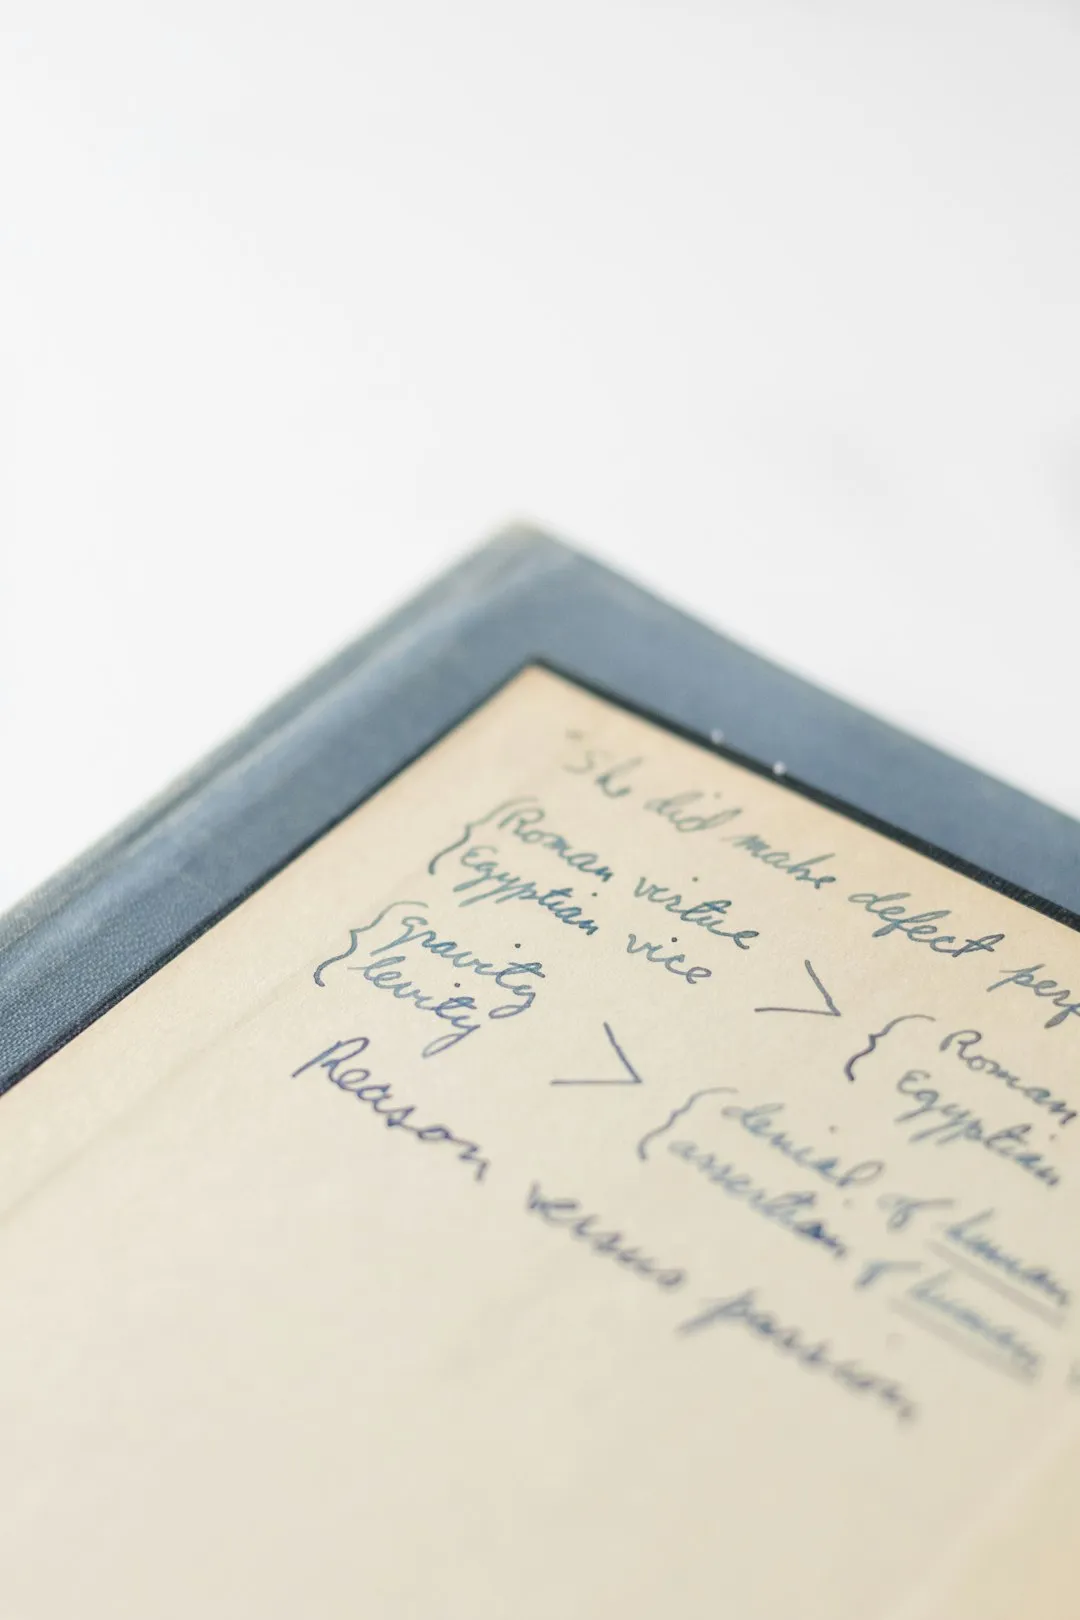 "She did make defect perf
{ Roman virtue > { Roman
{ Egyptian vice { Egyptian
{ gravity > { denial of human
{ levity { assertion of human
Reason versus passion.